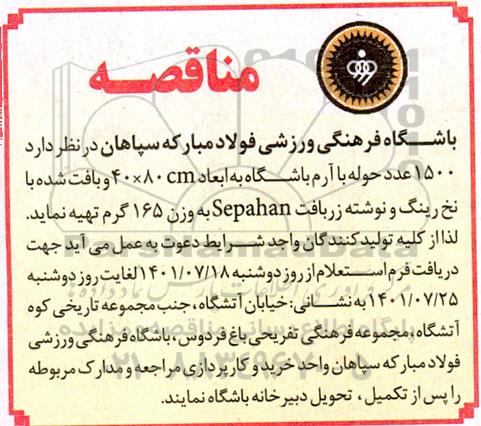 مناقصه
باشگاه فرهنگی ورزشی فولاد مبارکه سپاهان در نظر دارد
۱۵۰۰ عدد حوله با آرم باشگاه به ابعاد ۴۰×۸۰ cm و بافت شده با
نخ رینگ و نوشته زربافت Sepahan به وزن ۱۶۵ گرم تهیه نماید.
لذا از کلیه تولیدکنندگان واجد شرایط دعوت به عمل می آید جهت
دریافت فرم استعلام از روز دوشنبه ۱۴۰۱/۰۷/۱۸ لغایت روز دوشنبه
۱۴۰۱/۰۷/۲۵ به نشانی: خیابان آتشگاه، جنب مجموعه تاریخی کوه
آتشگاه، مجموعه فرهنگی تفریحی باغ فردوس، باشگاه فرهنگی ورزشی
فولاد مبارکه سپاهان واحد خرید و کارپردازی مراجعه و مدارک مربوطه
را پس از تکمیل، تحویل دبیرخانه باشگاه نمایند.